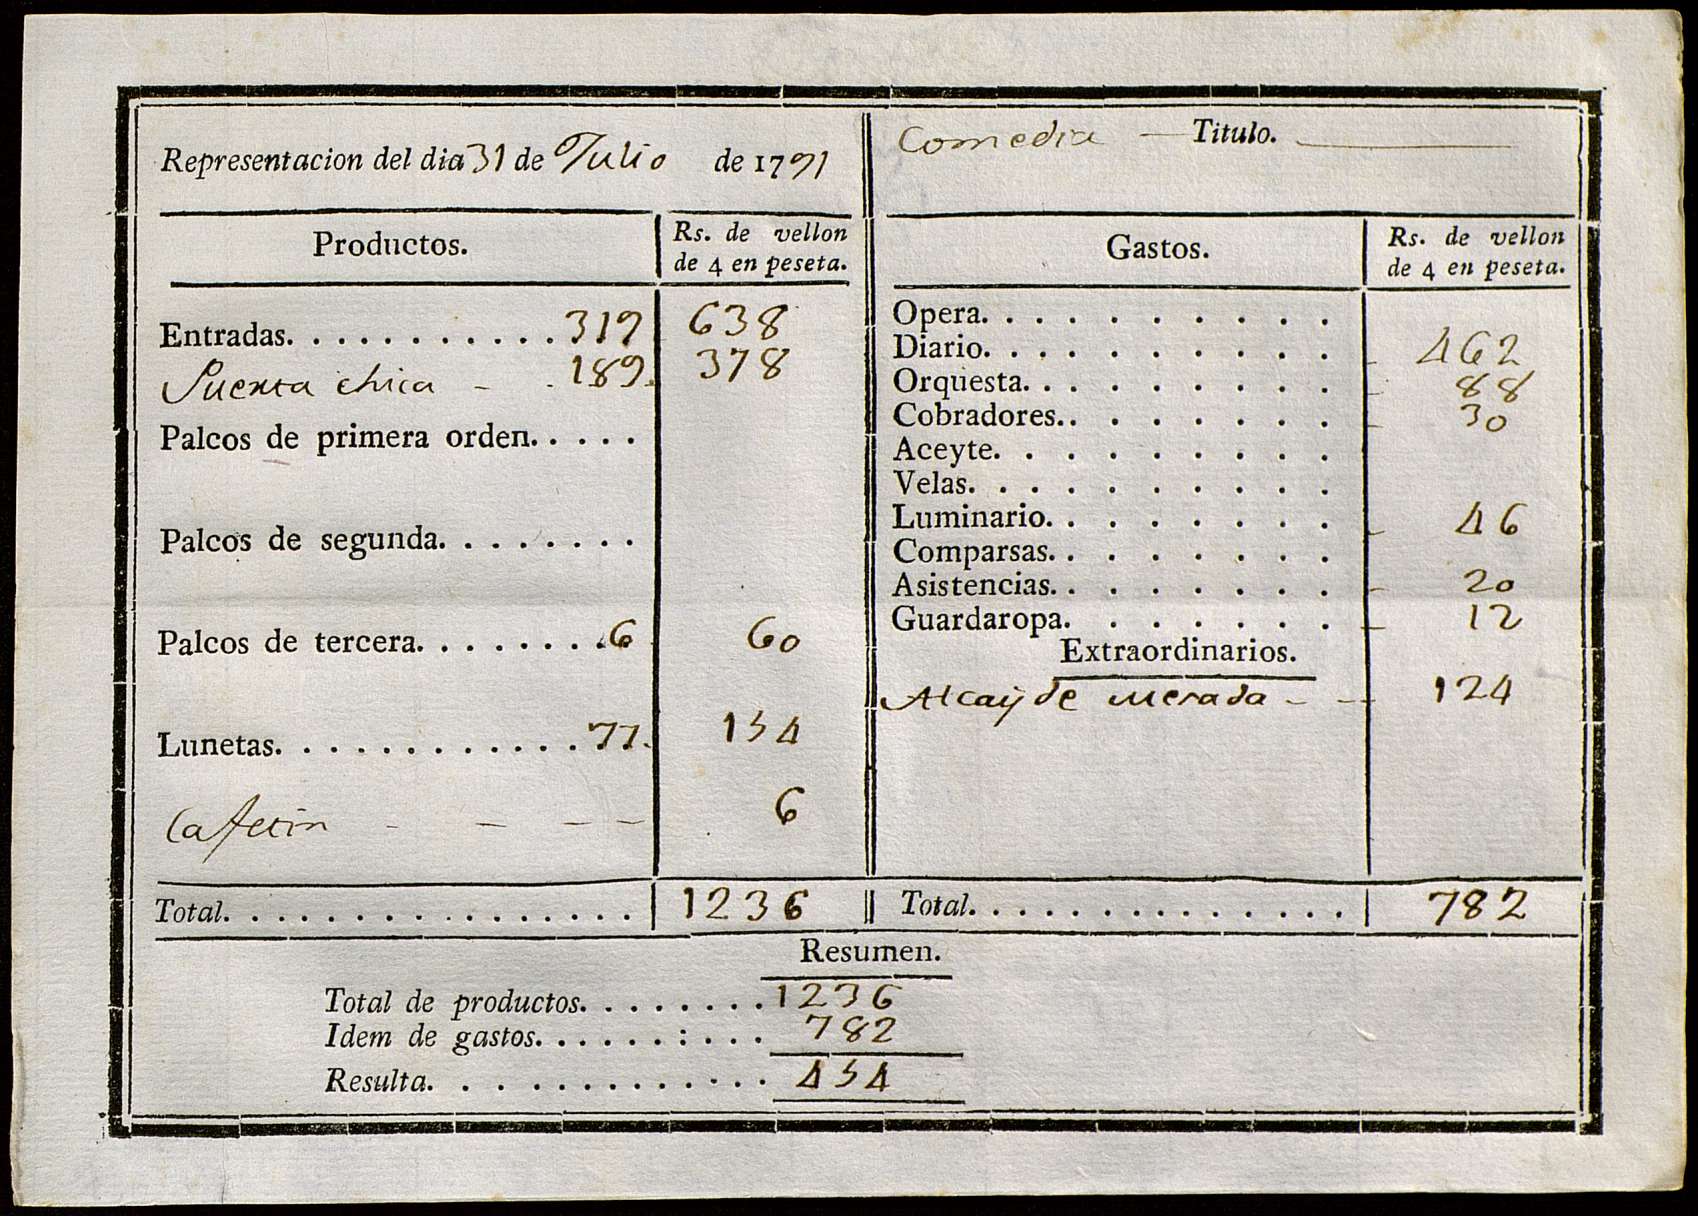 Representacion del dia 31 de Julio de 1791
Comedia — Titulo.
Productos.
Rs. de vellon
de 4 en peseta.
Entradas. . . . . . . . . . . . 319 638
Puerta chica - . 189. 378
Palcos de primera orden. . . . .
Palcos de segunda. . . . . . . .
Palcos de tercera. . . . . . . . 6 60
Lunetas. . . . . . . . . . . . . 77. 154
Cafetin - - - - 6
Total. . . . . . . . . . . . . . . . 1236
Gastos.
Rs. de vellon
de 4 en peseta.
Opera. . . . . . . . . .
Diario. . . . . . . . . . 462
Orquesta. . . . . . . . . 88
Cobradores. . . . . . . . 30
Aceyte. . . . . . . . . .
Velas. . . . . . . . . .
Luminario. . . . . . . . 46
Comparsas. . . . . . . .
Asistencias. . . . . . . . 20
Guardaropa. . . . . . . 12
Extraordinarios.
Alcayde - - 124
Total. . . . . . . . . . . . . . 782
Resumen.
Total de productos. . . . . . . . 1236
Idem de gastos. . . . . . : . . . 782
Resulta. . . . . . . . . . . . . 454